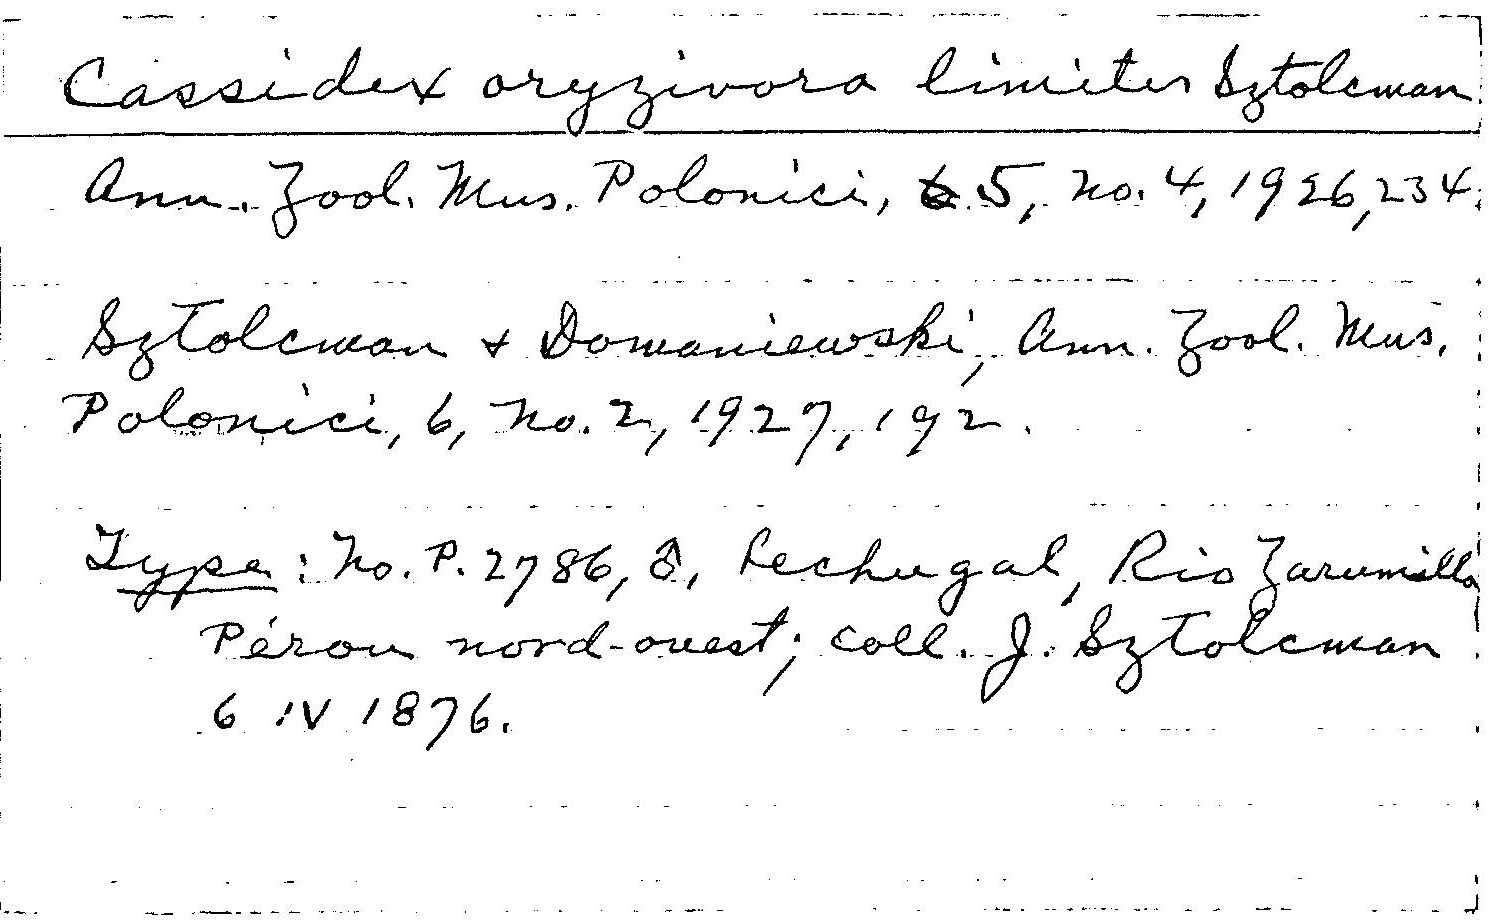 Cassidex oryzivora limites Sztolcman
Ann. Zool. Mus. Polonici, 5, No. 4, 1926, 234.
Sztolcman & Domaniewski, Ann. Zool. Mus.
Polonici, 6, No. 2, 1927, 192.
Type: No. P. 2786, ♂, Pechugal, Rio Zarumilla
Pérou nord-ouest; coll. J. Sztolcman
6 IV 1876.